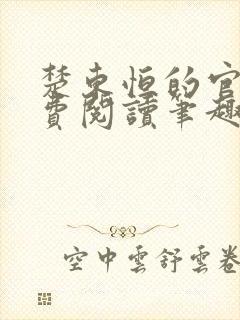 楚東恒的官
費閱讀筆趣
空中雲舒雲卷